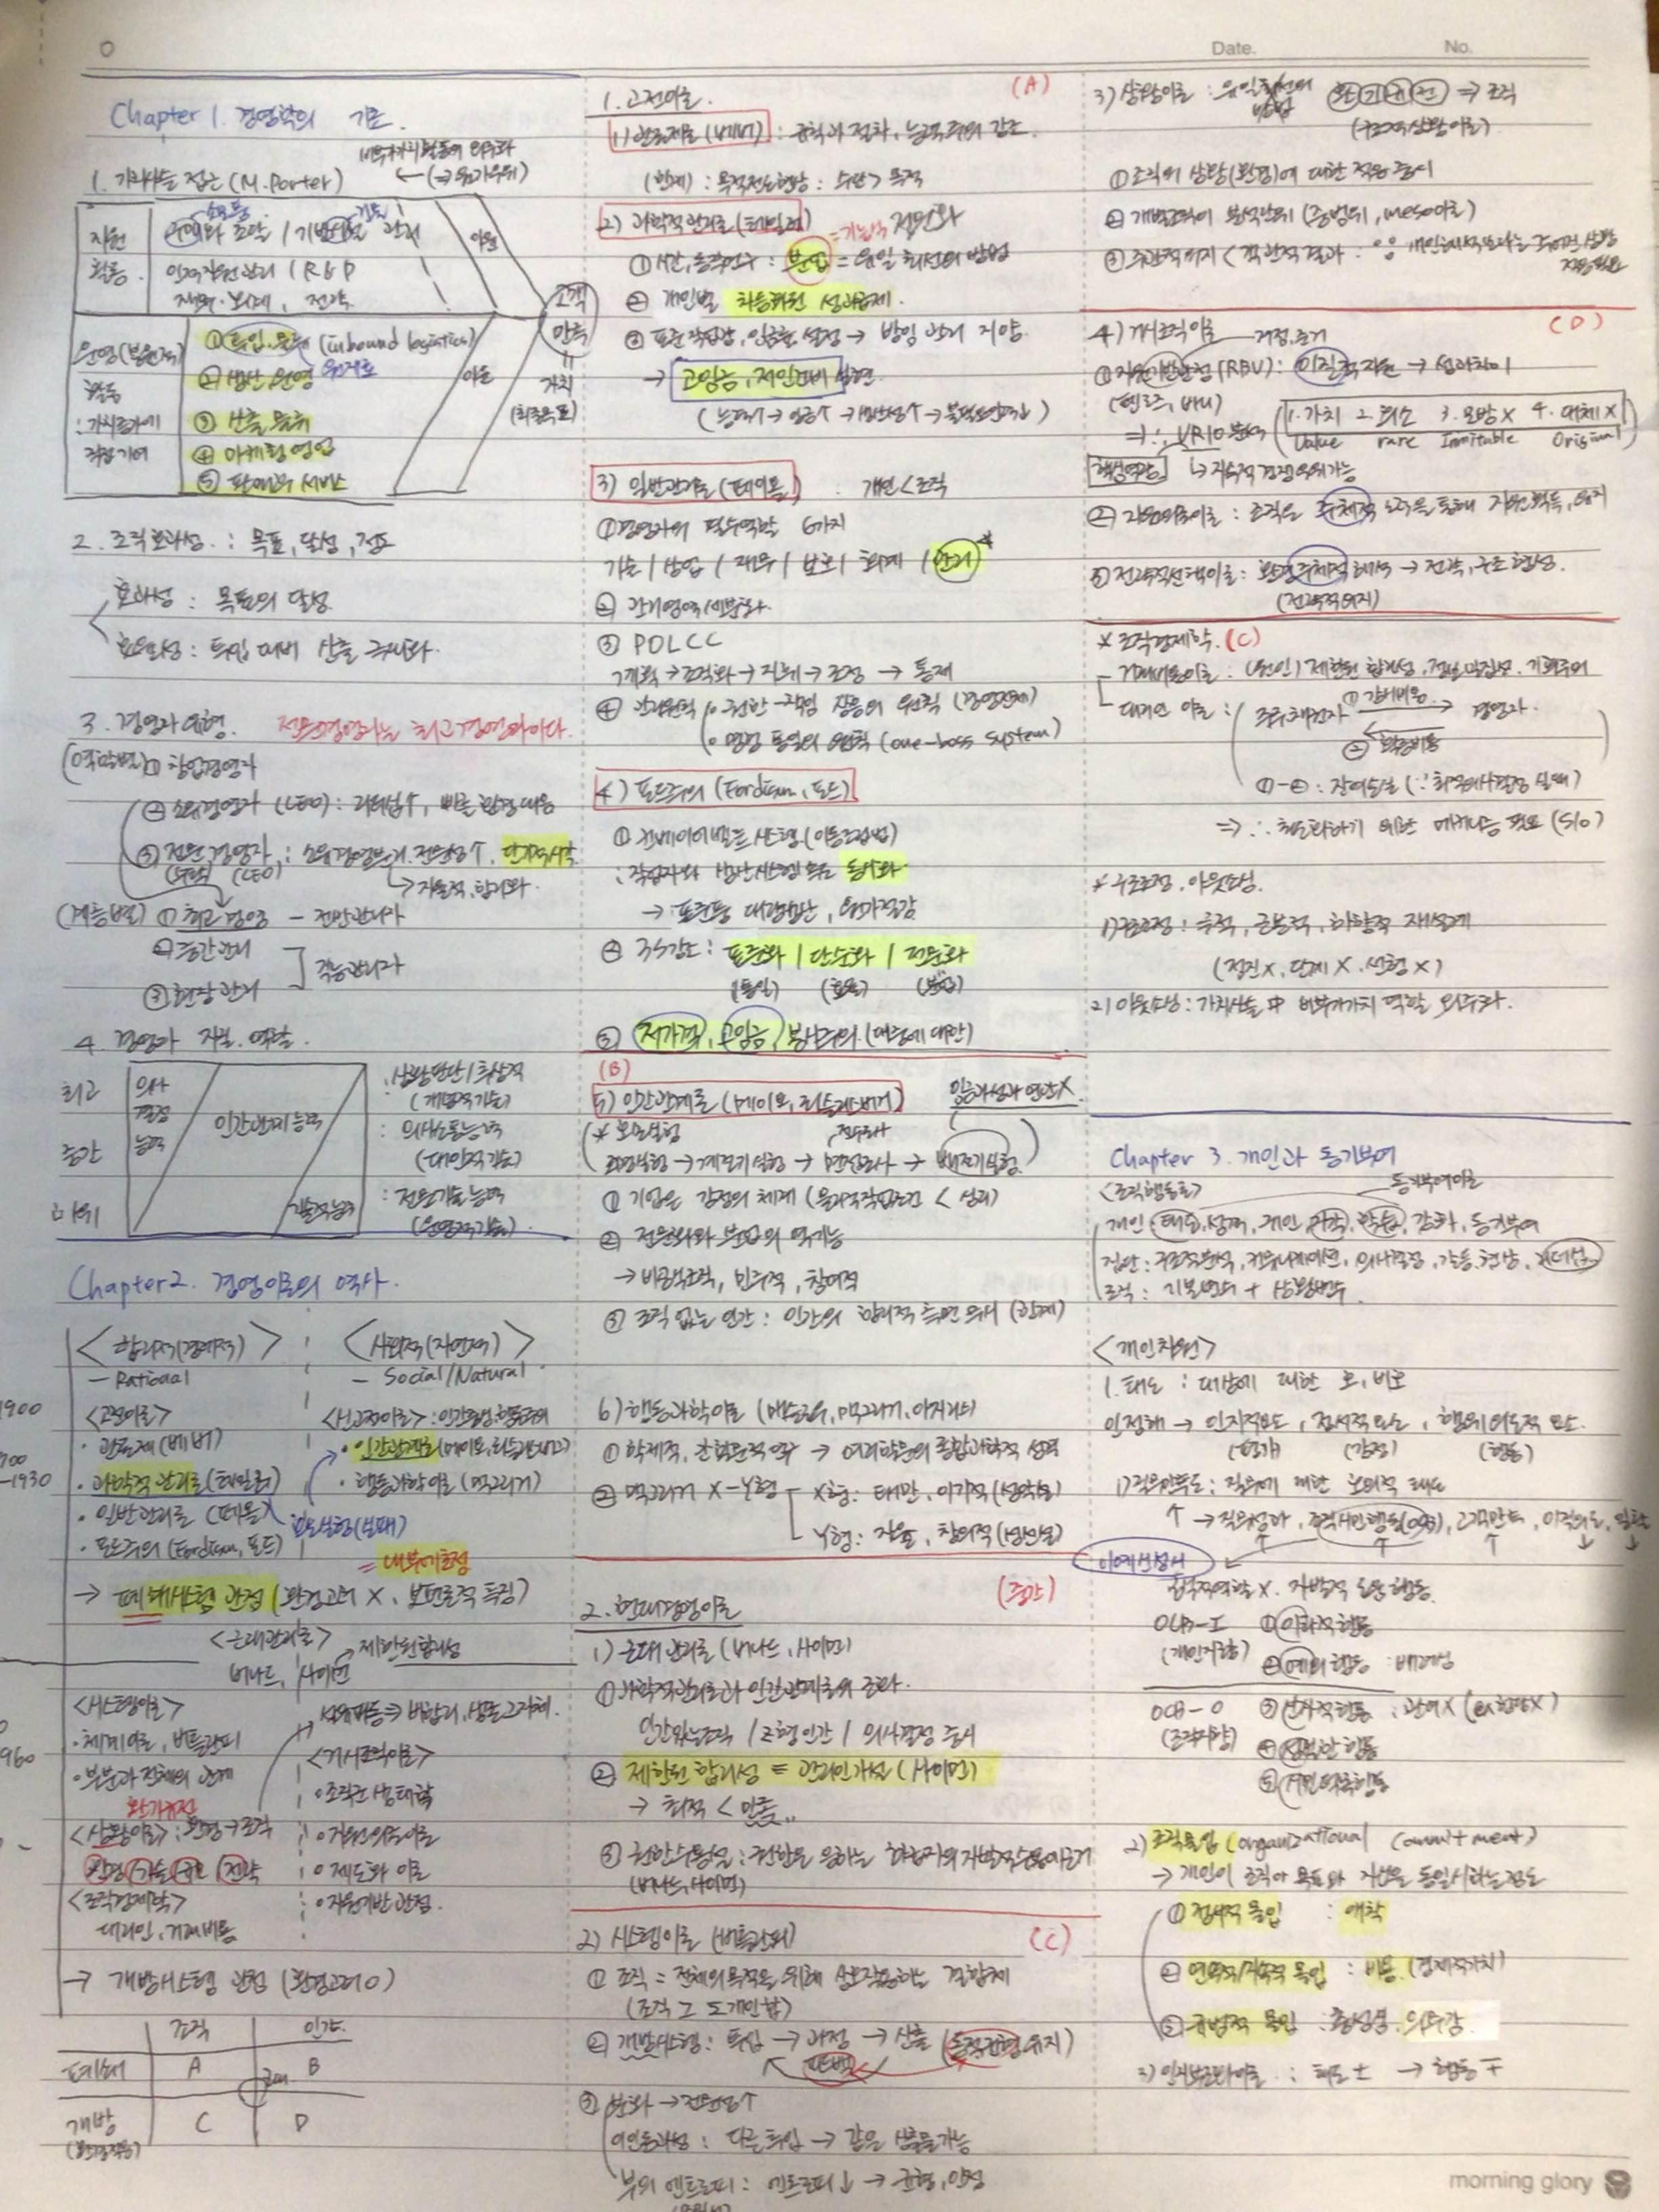 Date. No.
Chapter 1. 경영학의 기초.
1. 가치사슬 접근 (M.Porter)
비부가가치활동의 외주화
(⇒ 원가우위)
지원
활동.
구매와 조달 / 기반시설 관리
인적자원관리 / R&D
재무·회계, 전략
이윤
고객
만족
"
가치
(최종목표)
운영(본원적)
활동
: 가치증가에
직접기여
① 투입물류 (inbound logistics)
② 생산운영
③ 산출물류
④ 마케팅영업
⑤ 판매후 서비스
이윤
2. 조직효과성 : 목표, 달성, 정도
효과성 : 목표의 달성
효율성 : 투입 대비 산출 극대화.
3. 경영자 유형. 전문경영자는 최고경영자이다.
(역할별) ① 창업경영자
② 소유경영자 (CEO) : 리더십↑, 빠른 환경대응
③ 전문경영자 : 소유경영분리. 전문성↑, 단기적시각
(CEO)
→ 자율적, 합리화.
(계층별) ① 최고경영 - 전반관리자
② 중간관리
③ 현장관리
직능관리자
4. 경영자 자질. 역할.
최고
중간
하위
의사
결정
능력
인간관계능력
기술적능력
: 상황판단 / 추상적
(개념적기능)
: 의사소통능력
(대인적기능)
: 전문기술능력
(운영적기능)
Chapter 2. 경영이론의 역사.
<합리적(경제적)> <사회적(자연적)>
- Rational - Social/Natural
1900
<고전이론> <신고전이론> : 인간
· 관료제(베버) · 인간관계론(메이요, 뢰슬리스버거)
-1930
· 과학적관리론(테일러) · 행동과학이론(맥그리거)
· 일반관리론 (페욜) 호손실험(실패)
· 포드주의 (Fordism, 포드)
= 내부에 초점
→ 폐쇄시스템 관점 (환경고려 X, 보편론적 특징)
<근대관리론> 제한된합리성
버나드, 사이먼
<시스템이론>
· 체계이론, 버틀란피
<거시조직이론>
· 부분과 전체의 관계
· 조직군생태학
960
<상황이론> : 환경→조직
· 자원의존이론
환경 기술 규모 전략
· 제도화 이론
<조직경제학>
· 자원기반관점.
대리인, 거래비용
→ 개방시스템 관점 (환경고려 O)
조직 인간.
폐쇄 A B
개방 C D
1. 고전이론. (A)
1) 관료제론 (베버) : 규칙과 절차, 능력주의 강조.
(한계) : 목적전도현상 : 수단 > 목적
2) 과학적관리론 (테일러) = 기능적 전문화
① 시간, 동작연구 : 분업 = 유일 최선의 방법
② 개인별 차등화된 성과급제.
③ 표준작업량, 임금률 설정 → 방임관리 지양
→ 고임금, 저인건비 실현.
(능력↑ → 임금↑ → 생산성↑ → )
3) 일반관리론 (페이욜) . 개인 < 조직
① 경영자의 필수역할 6가지
기술 / 상업 / 재무 / 보호 / 회계 / 관리
② 관리영역 세분화.
③ POLCC
계획 → 조직화 → 지휘 → 조정 → 통제
④ 관리원칙 · 권한-책임 상응의 원칙
· 명령 통일의 원칙 (one-boss system)
4) 포드주의 (Fordism, 포드)
① 컨베이어벨트 시스템 (이동조립법)
: 작업자와 생산시스템 속도 동시화
→ 표준품 대량생산, 원가절감
② 3S강조 : 표준화 / 단순화 / 전문화
(통일) (효율) (분업)
③ 저가격, 고임금 / 봉사주의. (대중에 대한)
(B)
5) 인간관계론 (메이요, 뢰슬리스버거) 임금과성과 연관X.
* 호손실험
조명실험 → 계전기실험 → 면접조사 → 배전기실험
① 기업은 감정의 체계 (물리적작업조건 < 심리)
② 전문화와 분업의 역기능
→ 비공식조직, 민주적, 참여적
③ 조직 없는 인간 : 인간의 합리적 측면 무시 (한계)
6) 행동과학이론 (매슬로우, 맥그리거, 아지리스)
① 학제적, 간학문적 연구 → 여러학문의 종합과학적 성격
② 맥그리거 X-Y형 X형 : 태만, 이기적 (성악설)
Y형 : 자율, 창의적 (성선설)
2. 현대경영이론 (중간)
1) 근대 관리론 (버나드, 사이먼)
① 과학적관리론과 인간관계론의 조화.
인간있는조직 / 조직인간 / 의사결정 중시
② 제한된 합리성 = 관리인가설 (사이먼)
→ 최적 < 만족
③ 권한수용설 : 권한은 하급자의 자발적수용에 근거
(버나드, 사이먼)
2) 시스템이론 (버틀란피) (C)
① 조직 = 전체의목적을 위해 상호작용하는 결합체
② 개방시스템 : 투입 → 과정 → 산출 (동적균형유지)
피드백
③ 분화 → 전문성↑
이인동과성 : 다른투입 → 같은 산출물가능
부의 엔트로피 : 엔트로피↓ → 균형, 안정
3) 상황이론 : 유일최선의 방법 환 기 규 전 ⇒ 조직
(구조적상황이론)
① 조직의 상황(환경)에 대한 적응 중시
② 개별조직이 분석단위 (중범위, meso이론)
③ 주관적의지 < 객관적결과
(D)
4) 거시조직이론
① 자원기반관점(RBV) : 이질적자원 → 성과차이
(펜로즈, 바니)
⇒ ∴ VRIO분석 (1. 가치 2. 희소 3. 모방X 4. 대체X)
Value rare Imitable Original
핵심역량 ↳ 지속적 경쟁우위가능
② 자원의존이론 : 조직은 주체적 노력을 통해 자원획득, 유지
③ 전략적선택이론 : 환경 주체적해석 → 전략, 구조 형성.
(전략적의지)
* 조직경제학. (C)
거래비용이론 : (원인) 제한된 합리성, 정보밀집성. 기회주의
대리인 이론 : 주주채권자 ① 감시비용 → 경영자.
② 확증비용
①-② : 잔여손실 (∵ 최적의사결정 실패)
⇒ ∴ 최소화하기 위한 메커니즘 필요 (S/O)
* 구조조정. 아웃소싱.
1) 구조조정 : 급진적, 근본적, 하향적 재설계
(점진X, 단계X, 선형X)
2) 아웃소싱 : 가치사슬 中 비부가가치 역할 외주화.
Chapter 3. 개인과 동기부여
<조직행동론> 동기부여이론
개인 : 태도, 성격, 개인 지각, 학습, 강화, 동기부여
집단 : 규모적특성, 커뮤니케이션, 의사결정, 갈등, 협상, 리더십
조직 : 기본변수 + 상황변수
<개인차원>
1. 태도 : 대상에 대한 호, 비호
인정행 → 인지적요소, 정서적 요소, 행위의도적 요소.
(평가) (감정) (행동)
1) 직무만족도 : 직무에 대한 호의적 태도
↑ → 직무성과, 조직시민행동(OCB), 고객만족, 이직의도,
이예신성시
공식적역할X. 자발적 도움 행동.
OCB-I ① 이타적 행동
(개인지향) ② 예의 행동 : 배려성
OCB-O ③ 신사적행동 : 관여X (ex 험담X)
(조직지향) ④ 성실한 행동
⑤ 시민의식행동
2) 조직몰입 (organizational commitment)
→ 개인이 조직의 목표와 자신을 동일시하는정도
① 정서적 몰입 : 애착
② 연속적/지속적 몰입 : 비용 (경제적가치)
③ 규범적 몰입 : 충성심. 의무감.
3) 인지부조화이론 : 태도 ± → 행동 ∓
morning glory